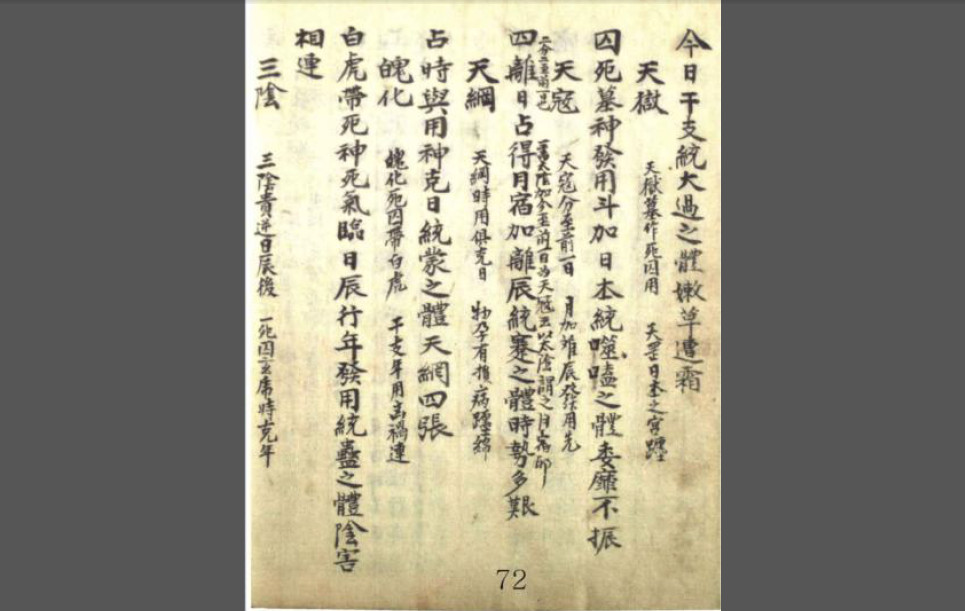 今日干支統大過之體嫩草遭霜
天獄 天獄墓作死囚用 天罡日本之宮躔
囚死墓神發用斗加日本統噬嗑之體委靡不振
天寇 天寇分至前一日 月加離辰發用先
四離日占得月宿加離辰統蹇之體時勢多艱
天綱 天綱時用俱克日 物孕有損病躔綿
占時與用神克日統蒙之體天網四張
魄化 魄化死囚帶白虎 干支年用禍連
白虎帶死神死氣臨日辰行年發用統蠱之體陰害
相連
三陰 三陰貴逆日辰後 死囚玄虎時克年
72